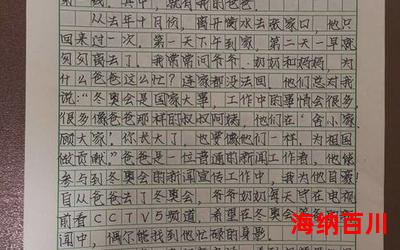 第一线。其中，就有我的爸爸。
从去年十月份，离开衡水去张家口，他只
回来过一次。第一天下午到家，第二天一早就
匆匆离去了。我常常问爷爷、奶奶和妈妈，为
什么爸爸这么忙？连家都没法回。他们总对我
说：“冬奥会是国家大事，工作中的事情会很多，
很多像爸爸那样的叔叔阿姨，他们在‘舍小家，
顾大家’。你长大了，也要像他们一样，为祖国
做贡献。”爸爸是一位普通的新闻工作者，他能
参与到冬奥会的新闻宣传工作中，我为他自豪！
自从爸爸去了冬奥会，爷爷奶奶每天守在电视
前看CCTV5频道，希望在冬奥会的
闻中，偶尔能找到他忙碌的身影。
海纳百川